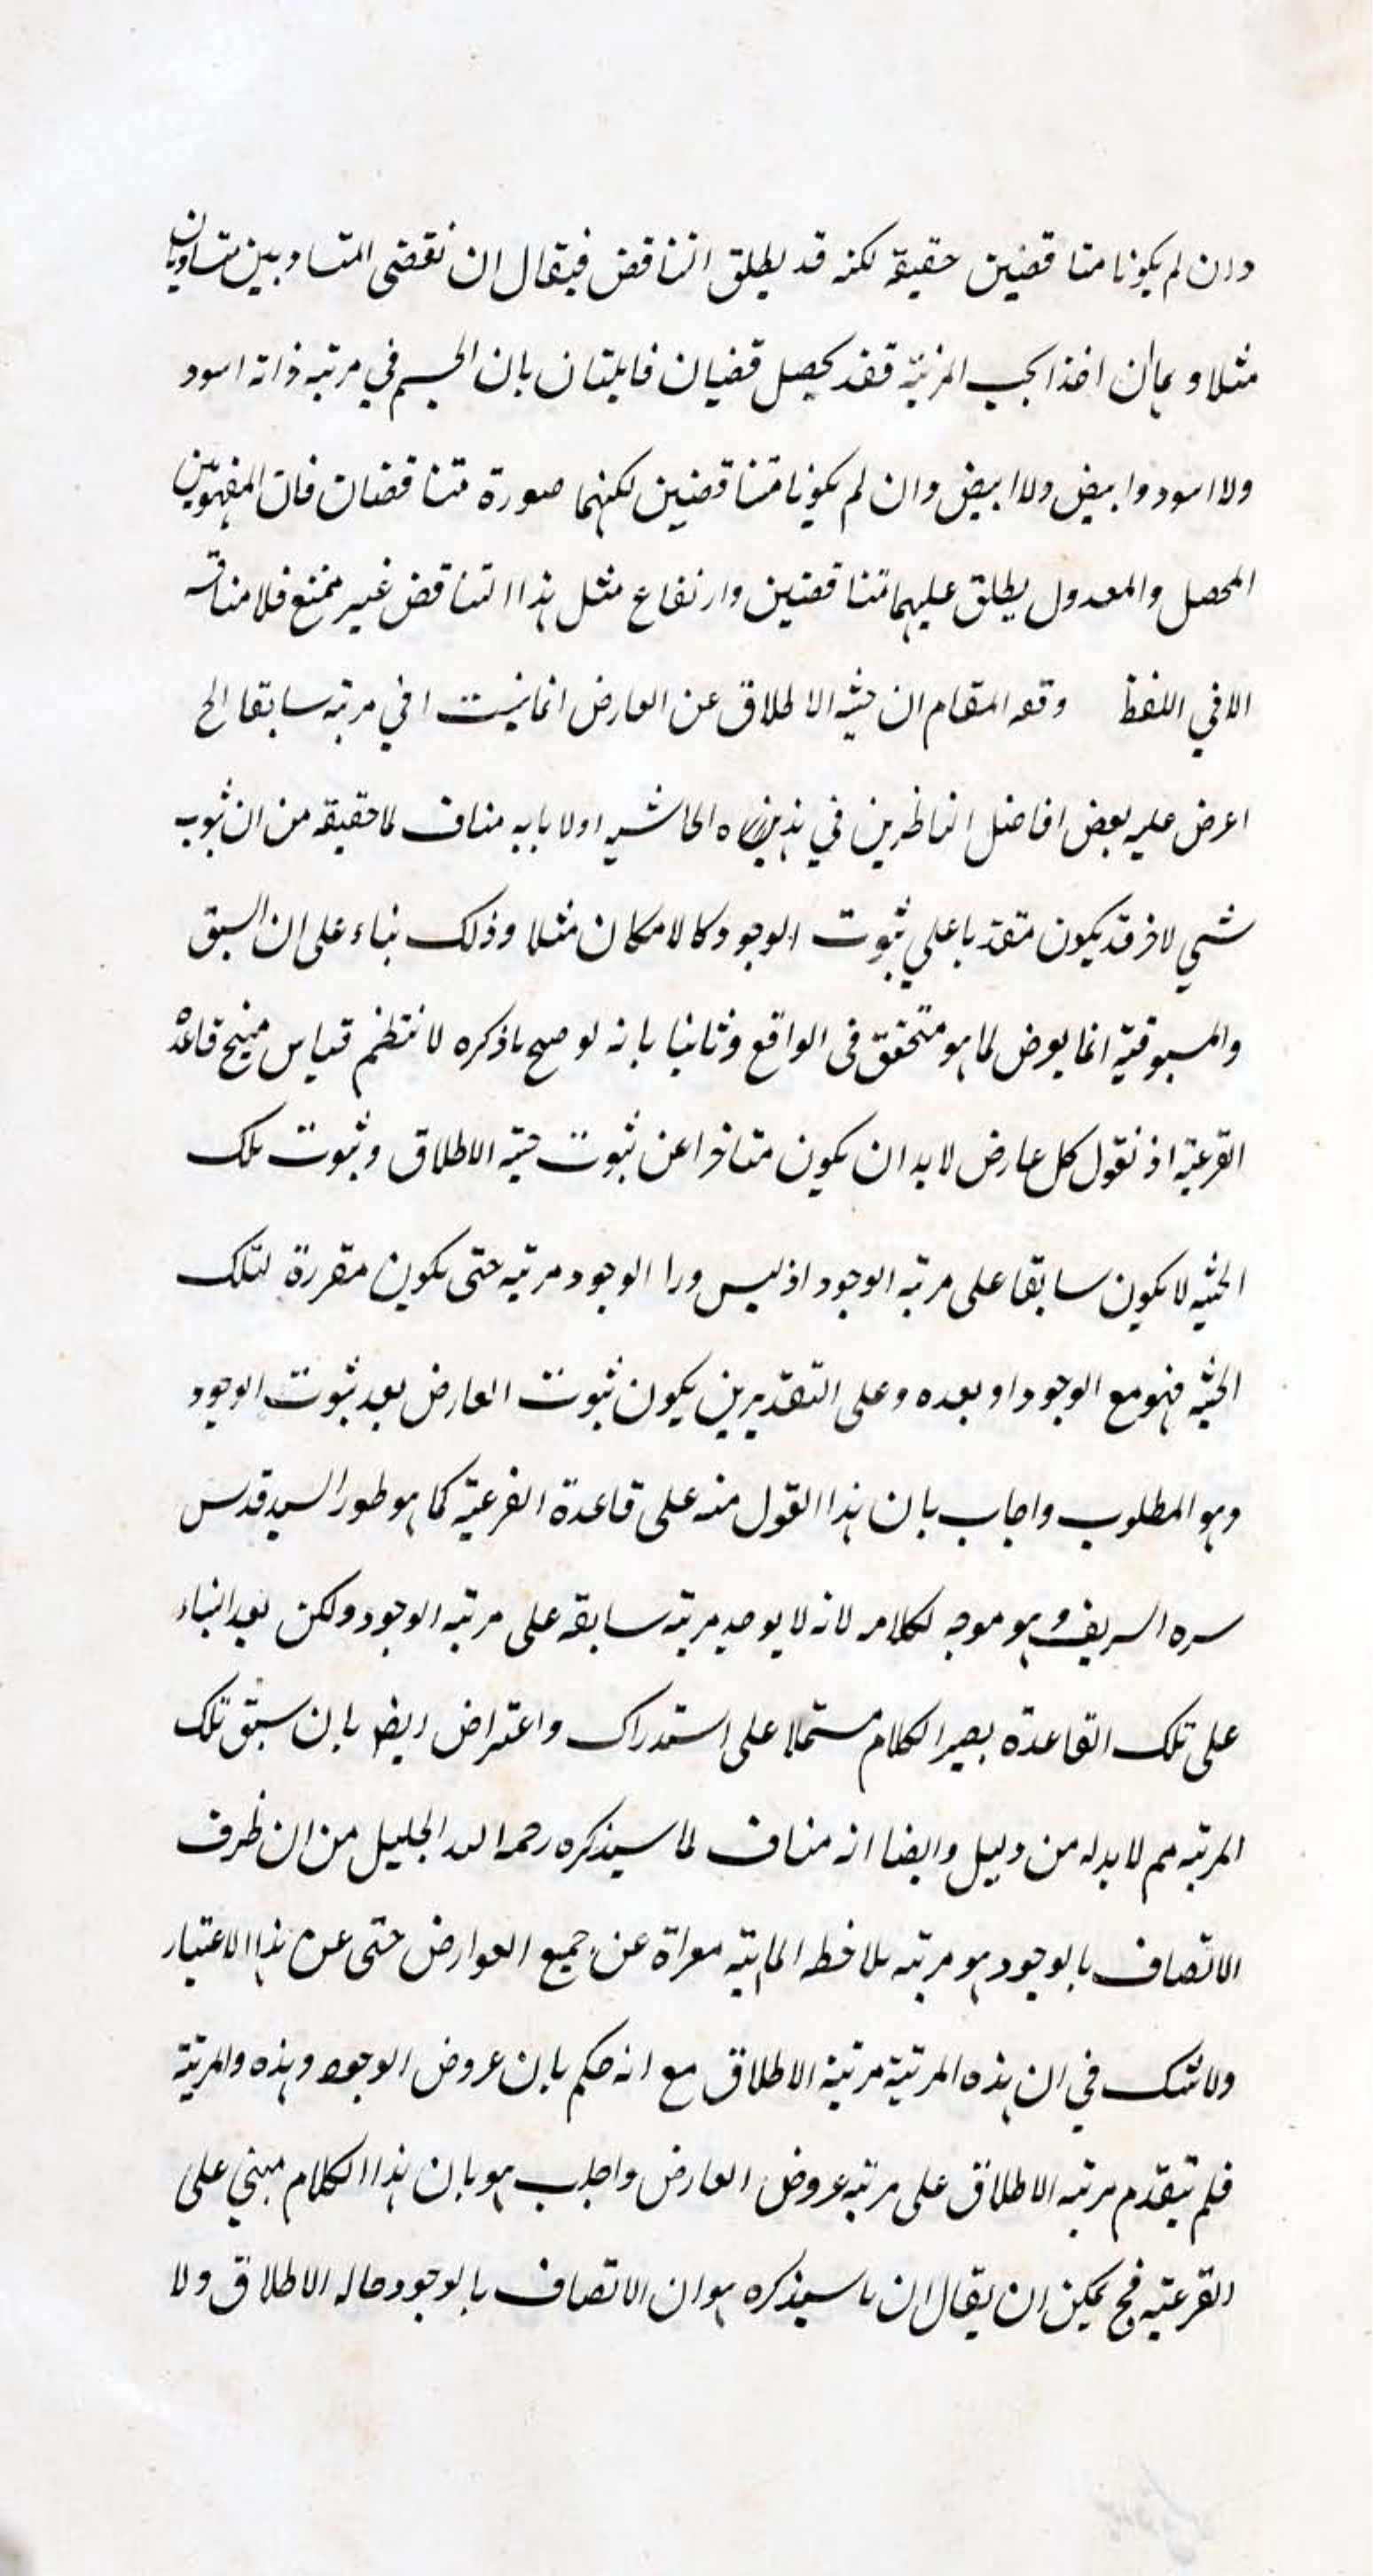 وان لم يكونا متناقضين حقيقة لكنه قد يطلق التناقض فيقال ان نقيضى المتساويين متساويان
مثلا وبمان اخذا بحسب المرتبة فقد يحصل قضيان قابلتان بان الجسم في مرتبه ذاته اسود
ولا اسود وابيض ولا ابيض وان لم يكونا متناقضين لكنهما صورة متناقضان فان المفهومين
المحصل والمعدول يطلق عليهما متناقضين وارتفاع مثل هذا التناقض غير ممتنع فلا مناقشه
الا في اللفظ وقعه المقام ان حيثيه الاطلاق عن العارض انما ليست في مرتبه سابقا الخ
اعرض عليه بعض افاضل الناظرين في هذه الحاشيه اولا بانه مناف لما حققه من ان ثبوت
شي لاخر قد يكون متقدما على ثبوت الوجود كالامكان مثلا وذلك بناء على ان السبق
والمسبوقيه انما يعرض لما هو متحقق فى الواقع وثانيا بانه لو صح ما ذكره لانتظم قياس ينتج قاعدة
الفرعيه اذ نقول كل عارض لابد ان يكون متاخرا عن ثبوت حيثيه الاطلاق وثبوت تلك
الحيثيه لا يكون سابقا على مرتبه الوجود اذ ليس ورا الوجود مرتبه حتى يكون مقررة لتلك
الحيثيه فهو مع الوجود او بعده وعلى التقديرين يكون ثبوت العارض بعد ثبوت الوجود
وهو المطلوب واجاب بان هذا القول منه على قاعدة الفرعيه كما هو طور السيد قدس
سره الشريف وهو موجه لكلامه لانه لا يوجد مرتبه سابقه على مرتبه الوجود ولكن بعد البناء
على تلك القاعدة يصير الكلام مشتملا على استدراك واعتراض ايضا بان سبق تلك
المرتبه مم لابد له من دليل وايضا انه مناف لما سيذكره رحمه الله الجليل من ان ظرف
الاتصاف بالوجود هو مرتبه ملاحظه الماهيه معراة عن جميع العوارض حتى عن هذا الاعتبار
ولا شك في ان هذه المرتبة مرتبة الاطلاق مع انه حكم بان عروض الوجود وهذه والمرتبة
فلم يتقدم مرتبه الاطلاق على مرتبه عروض العارض واجاب هو بان هذا الكلام مبني على
الفرعيه فح يمكن ان يقال ان ما سيذكره هو ان الاتصاف بالوجود حاله الاطلاق ولا